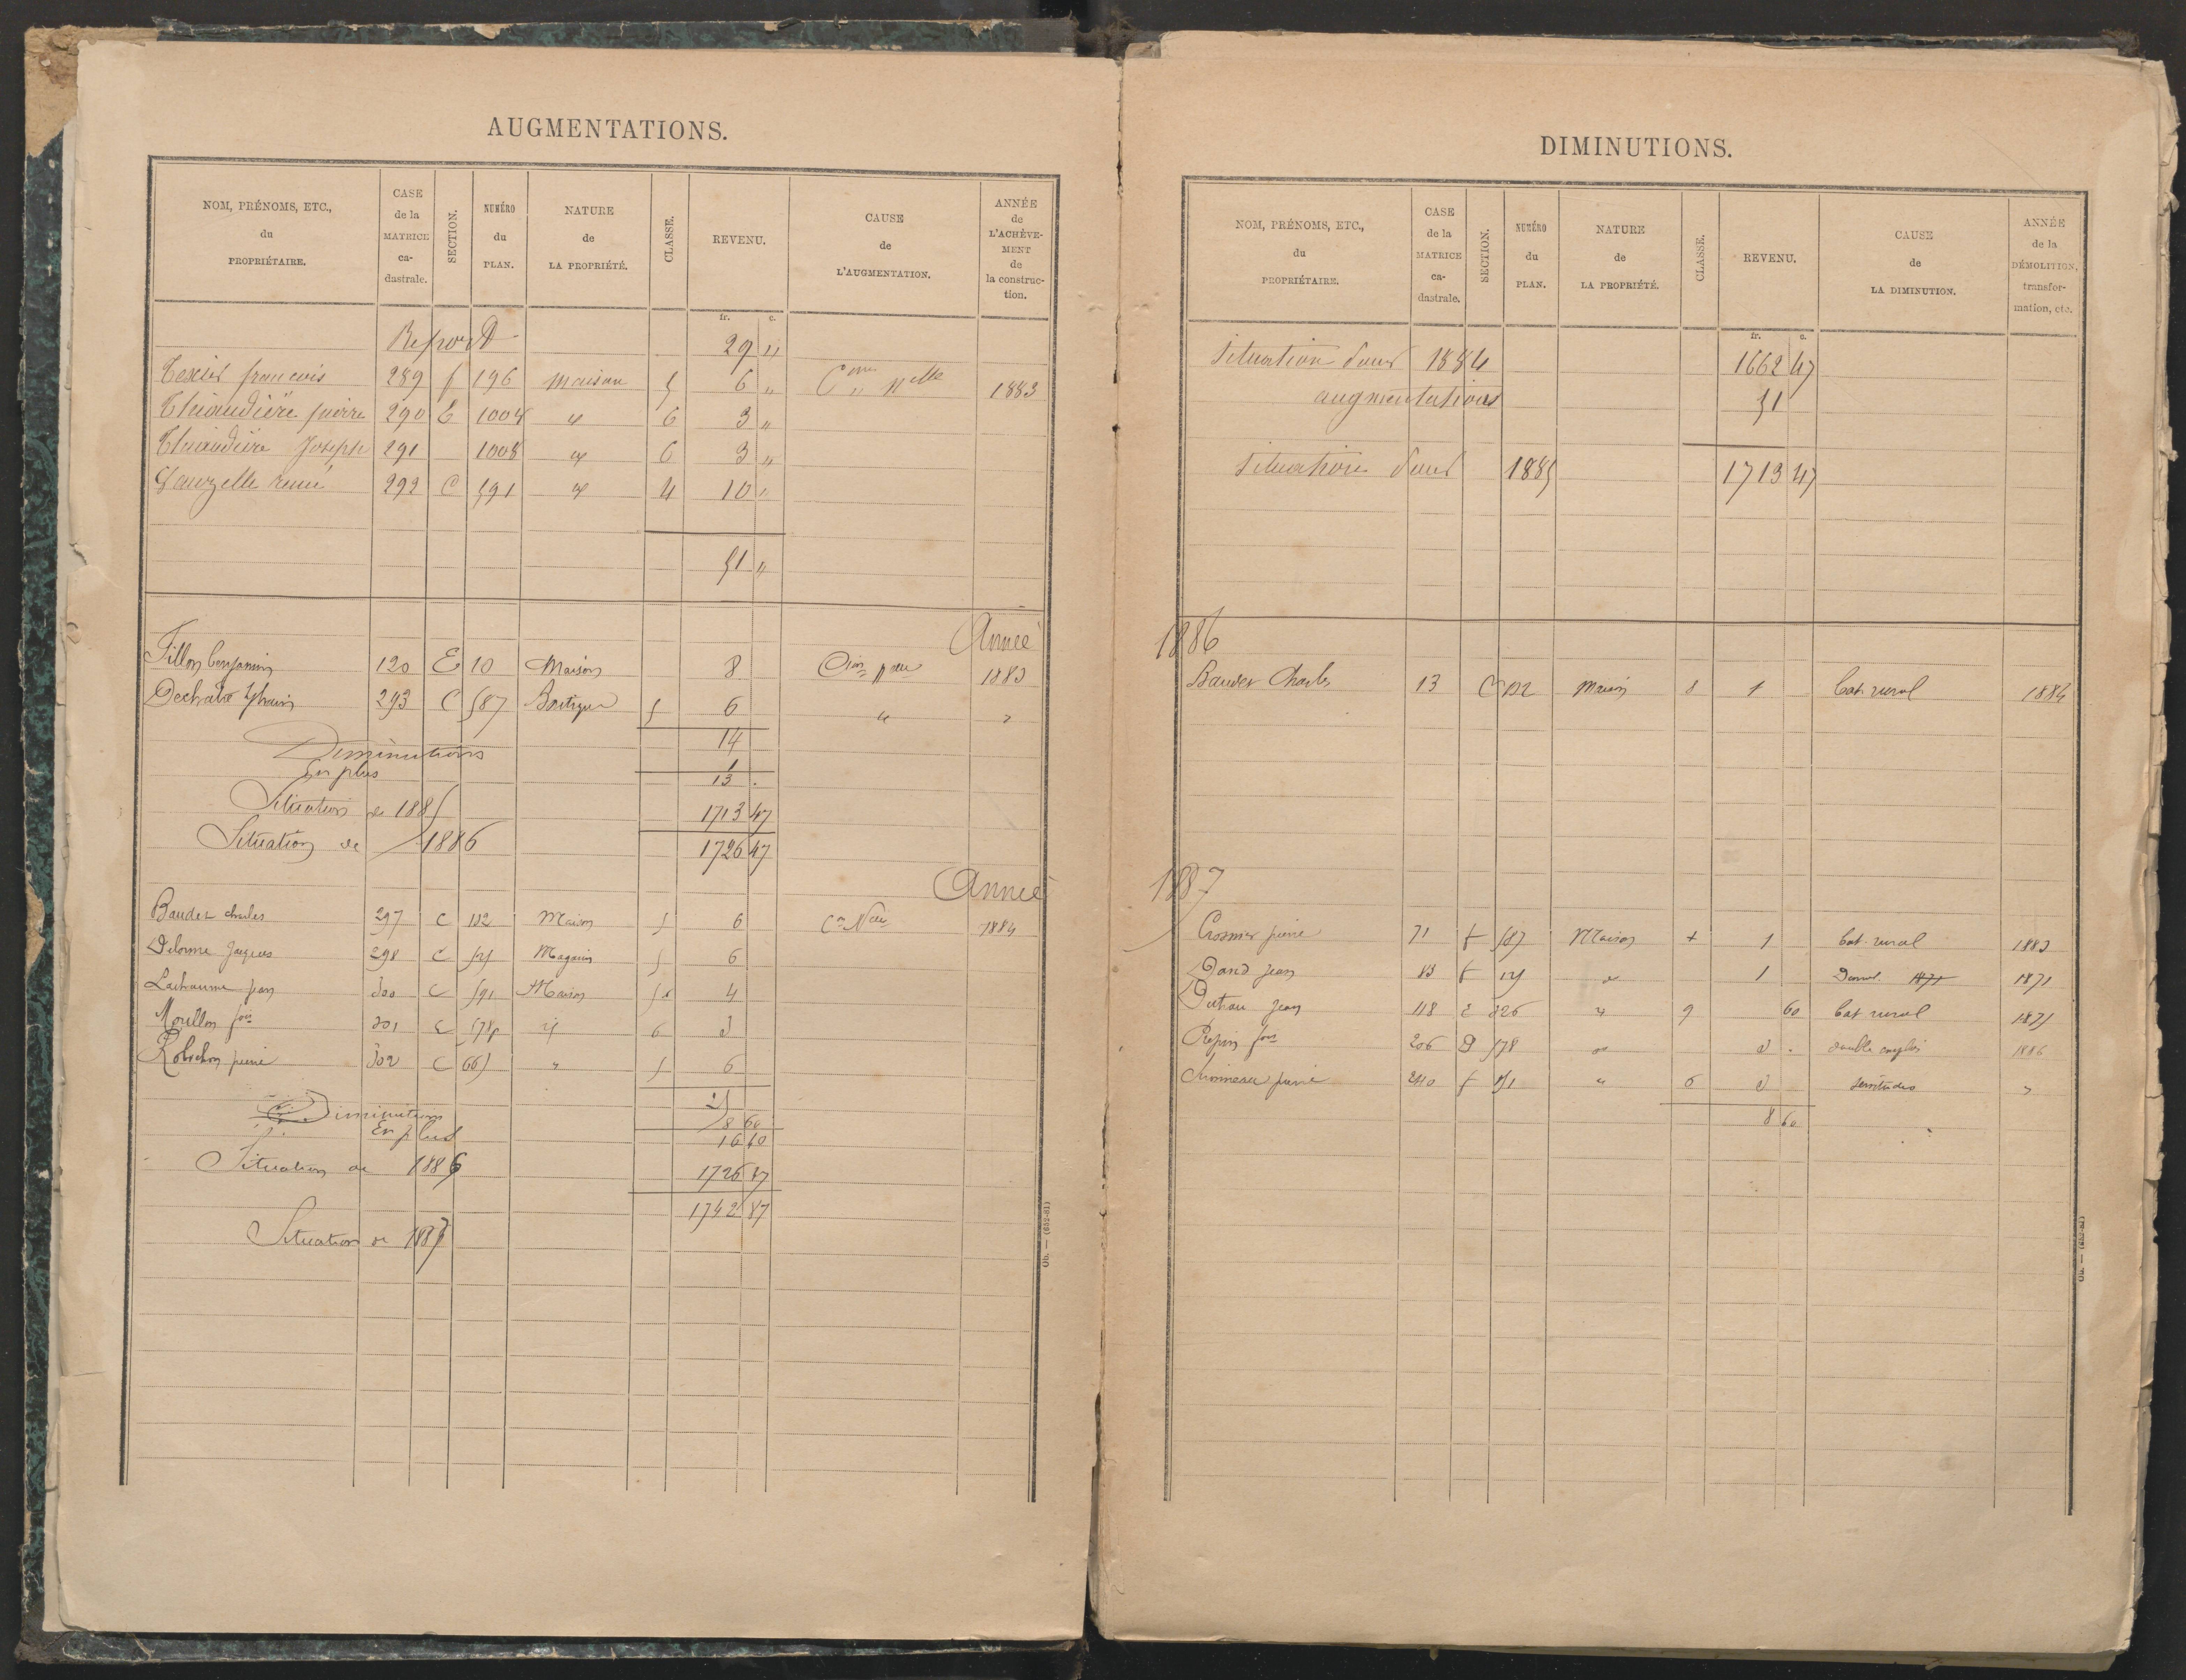 AUGMENTATIONS.
NOM, PRÉNOMS, ETC., du PROPRIÉTAIRE. CASE de la MATRICE ca- dastrale. SECTION. NUMÉRO du PLAN. NATURE de LA PROPRIÉTÉ. CLASSE. REVENU. CAUSE de L'AUGMENTATION. ANNÉE de L'ACHÈVE- MENT de la construc- tion.
fr. c.
Report 29 "
Texier francois 289 f 196 maison 5 6 " Con nelle 1883
Thiaudière pierre 290 E 1004 " 6 3 "
Thiaudière Joseph 291 1008 " 6 3 "
Sauzelle rené 292 C 591 " 4 10 "
51 "
Année
Fillon benjamin 120 E 10 Maison 8 Con nelle 1883
293 C 587 Boutique 5 6 " "
14
Diminutions 1
En plus 13 .
Situation de 1885 1713 47
Situation de 1886 1726 47
Année
Baudet charles 297 C 132 Maison 5 6 Con Nelle 1884
Delorme Jacques 298 C Magasin 5 6
Lachaume jean 300 C 591 Maison 4
Moullon fois 301 E 578p " 6 3
Robichon pierre 302 C 665 " 5 6
25
Diminutions 8 60
En plus 16 40
Situation de 1886 1726 47
1742 87
Situation de 1887
Ob. — (652-81)
DIMINUTIONS.
NOM, PRÉNOMS, ETC., du PROPRIÉTAIRE. CASE de la MATRICE ca- dastrale. SECTION. NUMÉRO du PLAN. NATURE de LA PROPRIÉTÉ. CLASSE. REVENU. CAUSE de LA DIMINUTION. ANNÉE de la DÉMOLITION, transfor- mation, etc.
fr. c.
Situation pour 1884 1662 47
augmentations 51
Situation pour 1885 1713 47
1886
Baudet Charles 13 C 132 Maison 8 1 bat. rural 1884
1887
Crosnier pierre 71 f 587 Maison + 1 bat. rural 1883
David jean 83 f " 1 Demol. 1871 1871
jean 118 E 326 " 9 60 bat rural 1875
Papin fois 206 D 578 " 3 . double emploi 1886
pierre 240 f " 6 3 servitudes "
8 60
Ob. — (652-81)